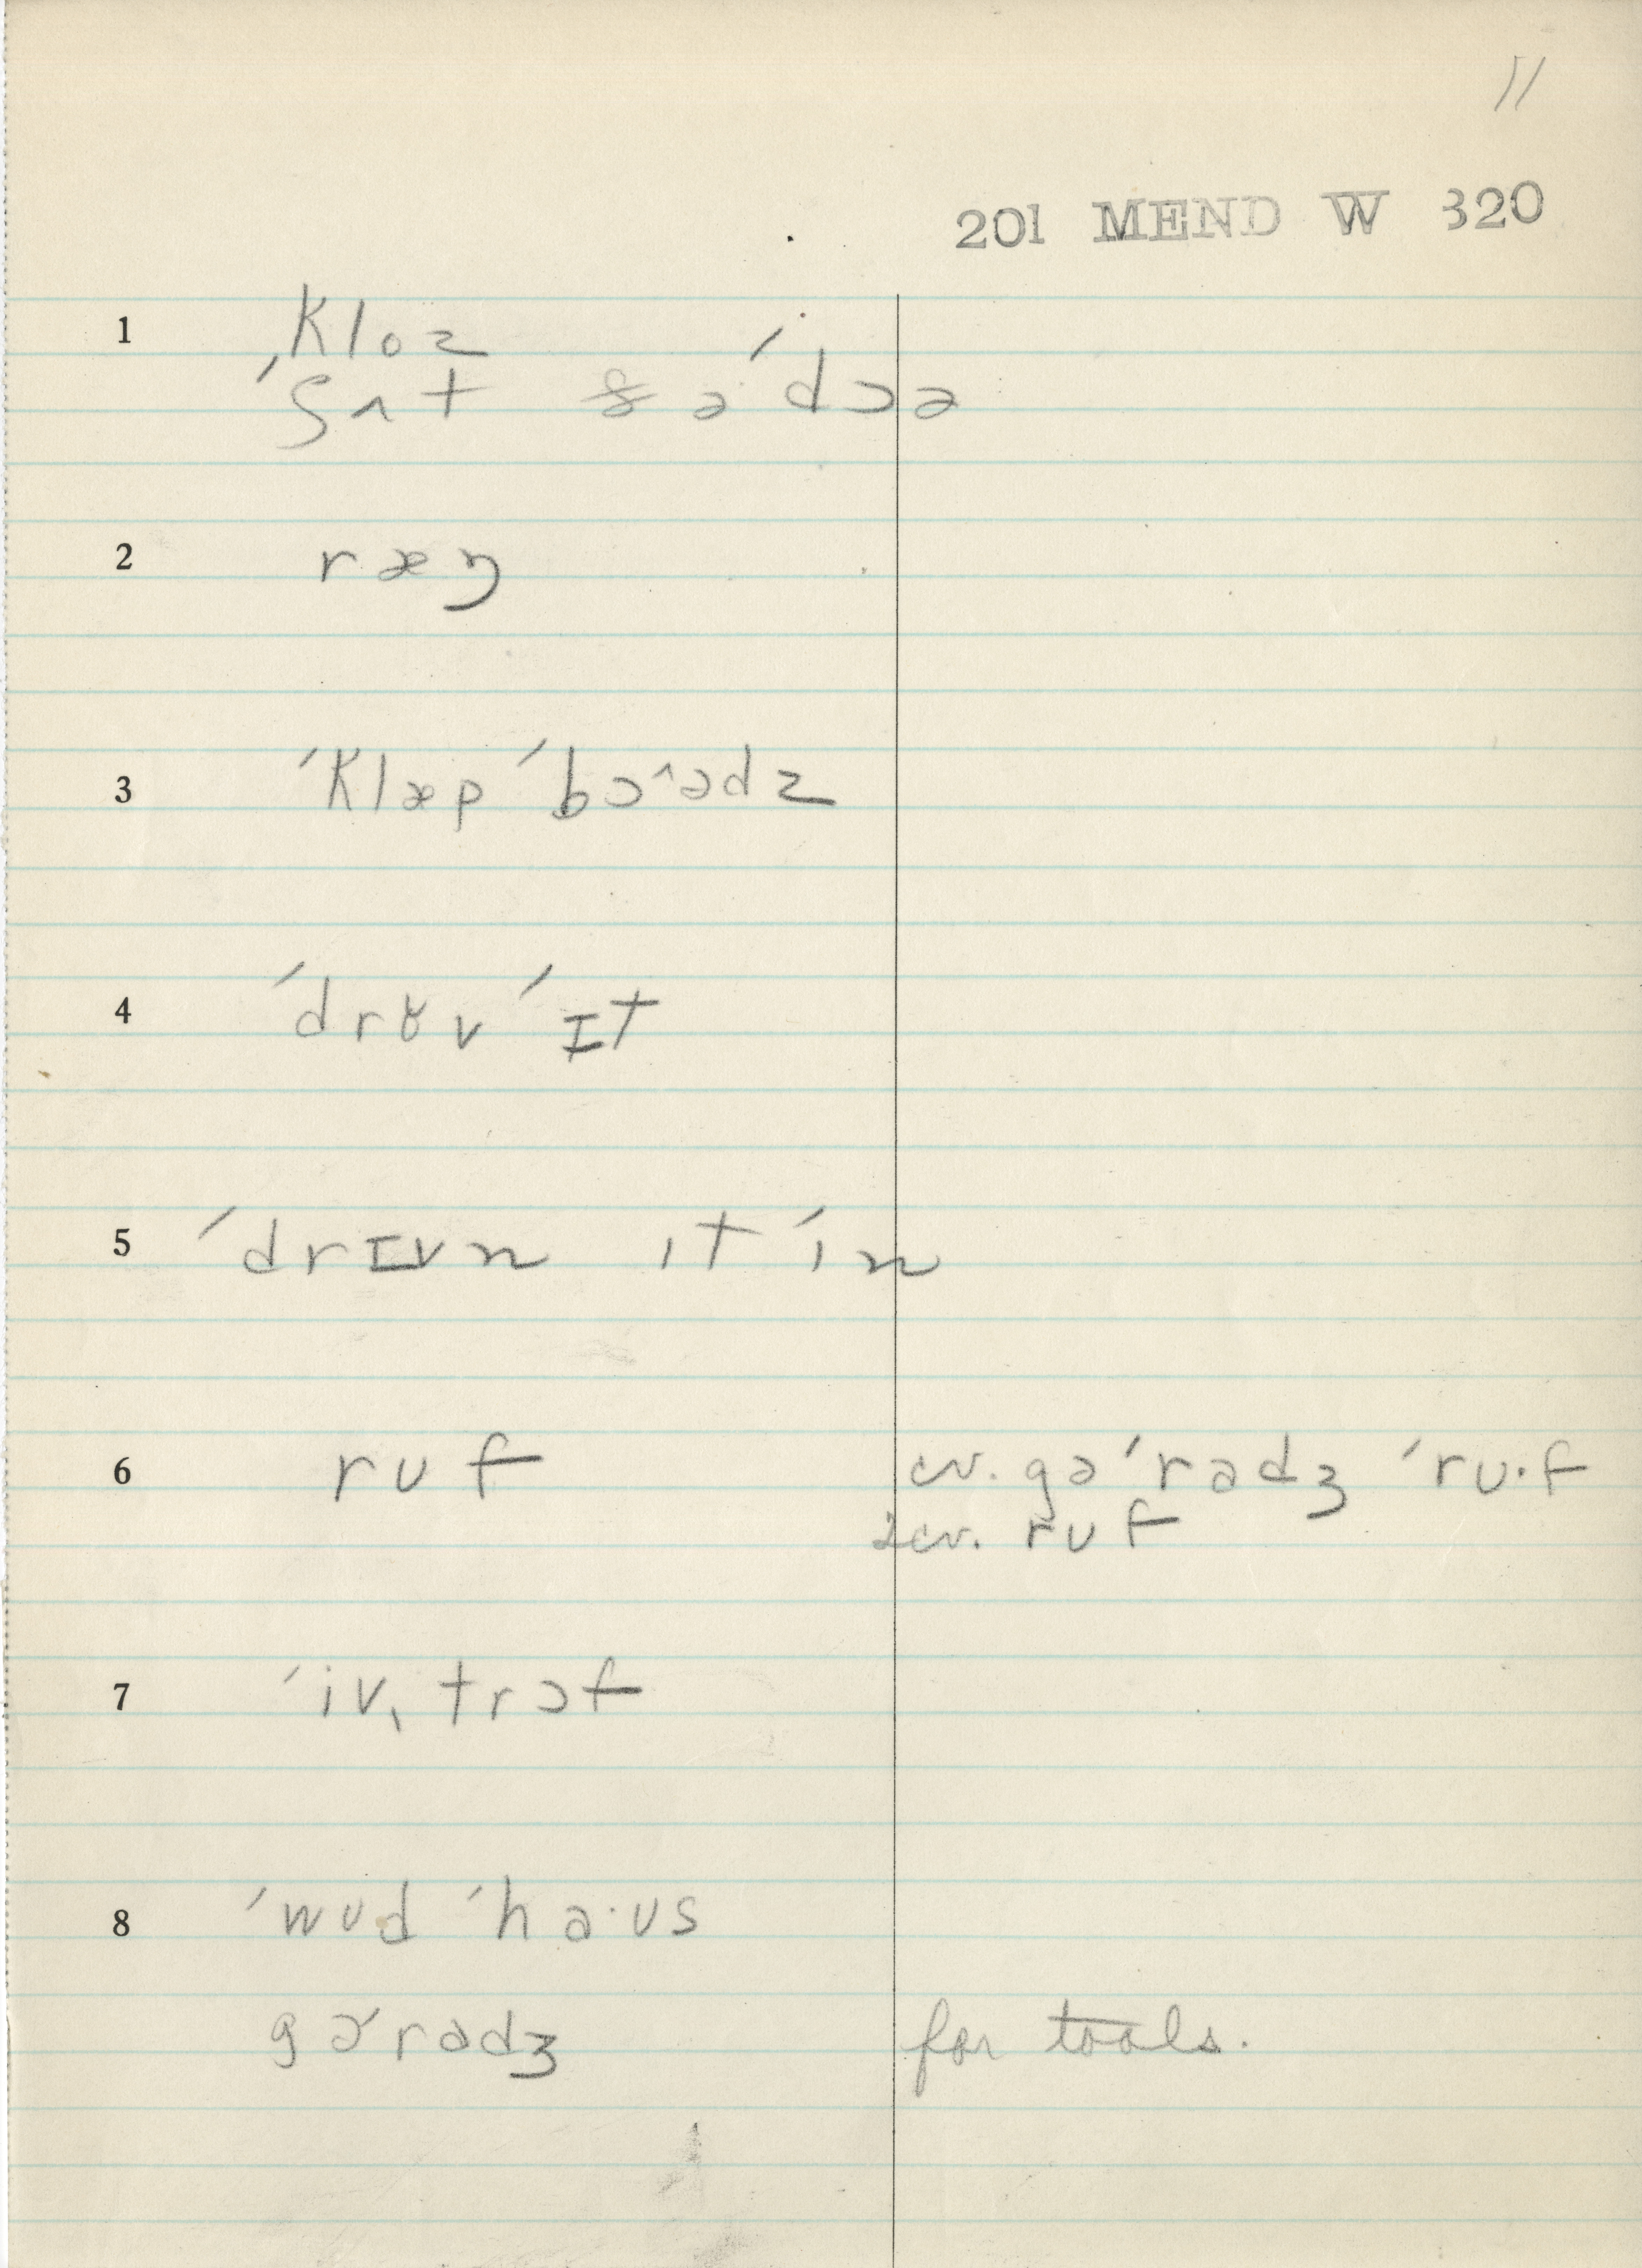 11
201 MEND W 320
1 kloz
ˈʃʌt ð ə ˈdɔə
2 ræŋ
3 ˈklæp ˈbɔ^ədz
4 ˈdrʊv ˈɪt
5 ˈdrɪvn ɪt ˈɪn
6 rʊf cv. gəˈradʒ ˈrʊ·f
2cv. rʊf
7 ˈiv, trɔf
8 ˈwʊd ˈha·ʊs
gəˈradʒ for tools.